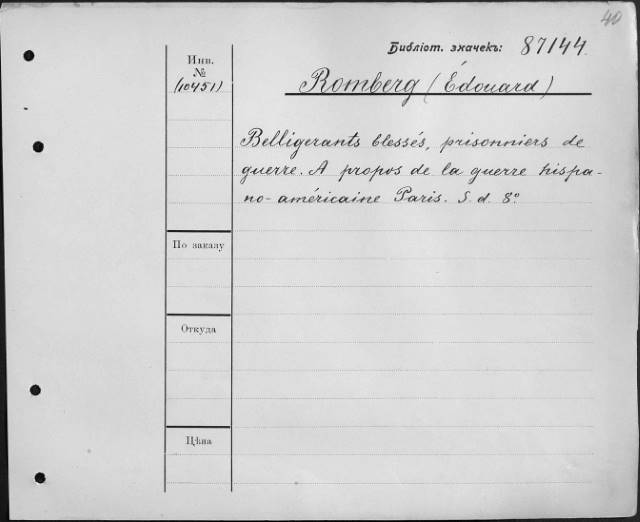 40
Библіот. значекъ: 87144
Инв.
№
(10451)
Romberg (Édouard)
Belligerants blessés, prisonniers de
guerre. A propos de la guerre hispa-
no-américaine Paris. S. d. 8°.
По заказу
Откуда
Цѣна